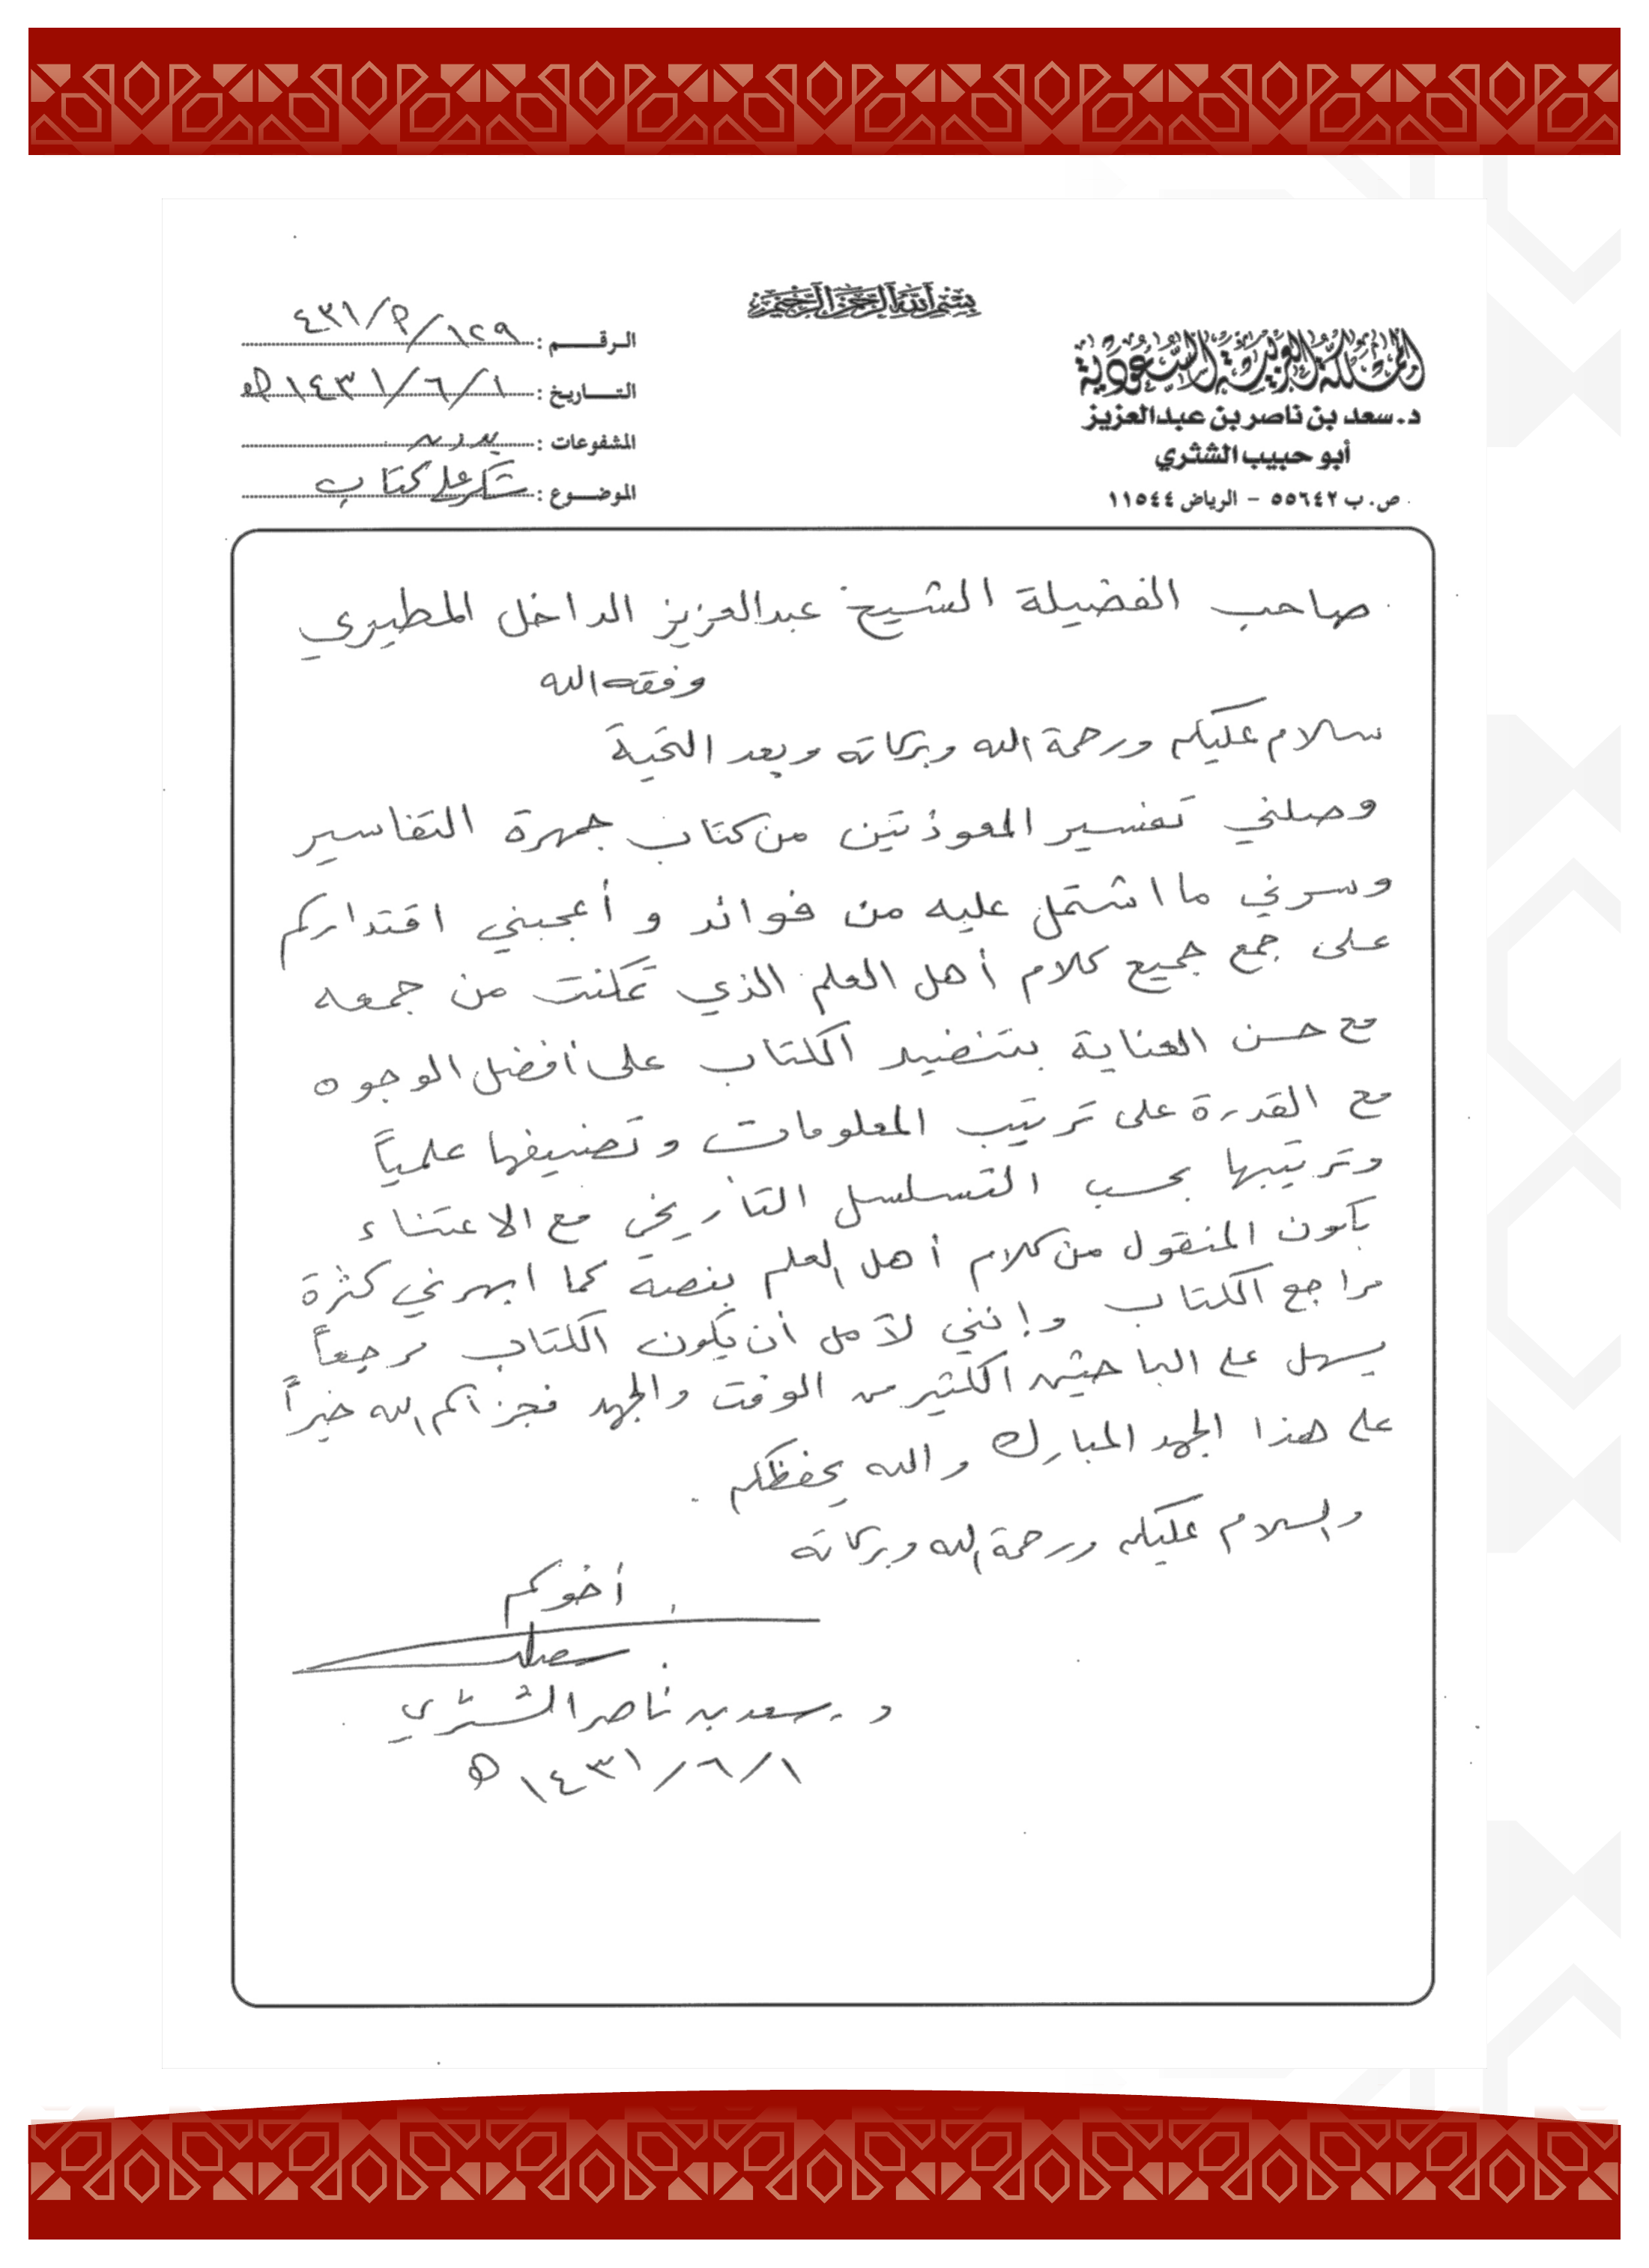 بسم الله الرحمن الرحيم
المملكة العربية السعودية
د. سعد بن ناصر بن عبدالعزيز
أبو حبيب الشثري
ص. ب ٥٥٦٤٢ - الرياض ١١٥٤٤
الرقم : ١٢٩/م/٤٣١
التاريخ : ١/٦/١٤٣١هـ
المشفوعات : بدون
الموضوع : شكر على كتاب
صاحب الفضيلة الشيخ عبدالعزيز الداخل المطيري
وفقه الله
سلام عليكم ورحمة الله وبركاته وبعد التحية
وصلني تفسير المعوذتين من كتاب جمهرة التفاسير
وسرني ما اشتمل عليه من فوائد وأعجبني اقتداركم
على جمع جميع كلام أهل العلم الذي تمكنت من جمعه
مع حسن العناية بتنضيد الكتاب على أفضل الوجوه
مع القدرة على ترتيب المعلومات وتصنيفها علمياً
وترتيبها بحسب التسلسل التأريخي مع الاعتناء
بكون المنقول من كلام أهل العلم بنصه كما ابهرني كثرة
مراجع الكتاب وإنني لآمل أن يكون الكتاب مرجعاً
يسهل على الباحثين الكثير من الوقت والجهد فجزاكم الله خيراً
على هذا الجهد المبارك والله يحفظكم .
والسلام عليكم ورحمة الله وبركاته
أخوكم
د. سعد بن ناصر الشثري
١/٦/١٤٣١هـ